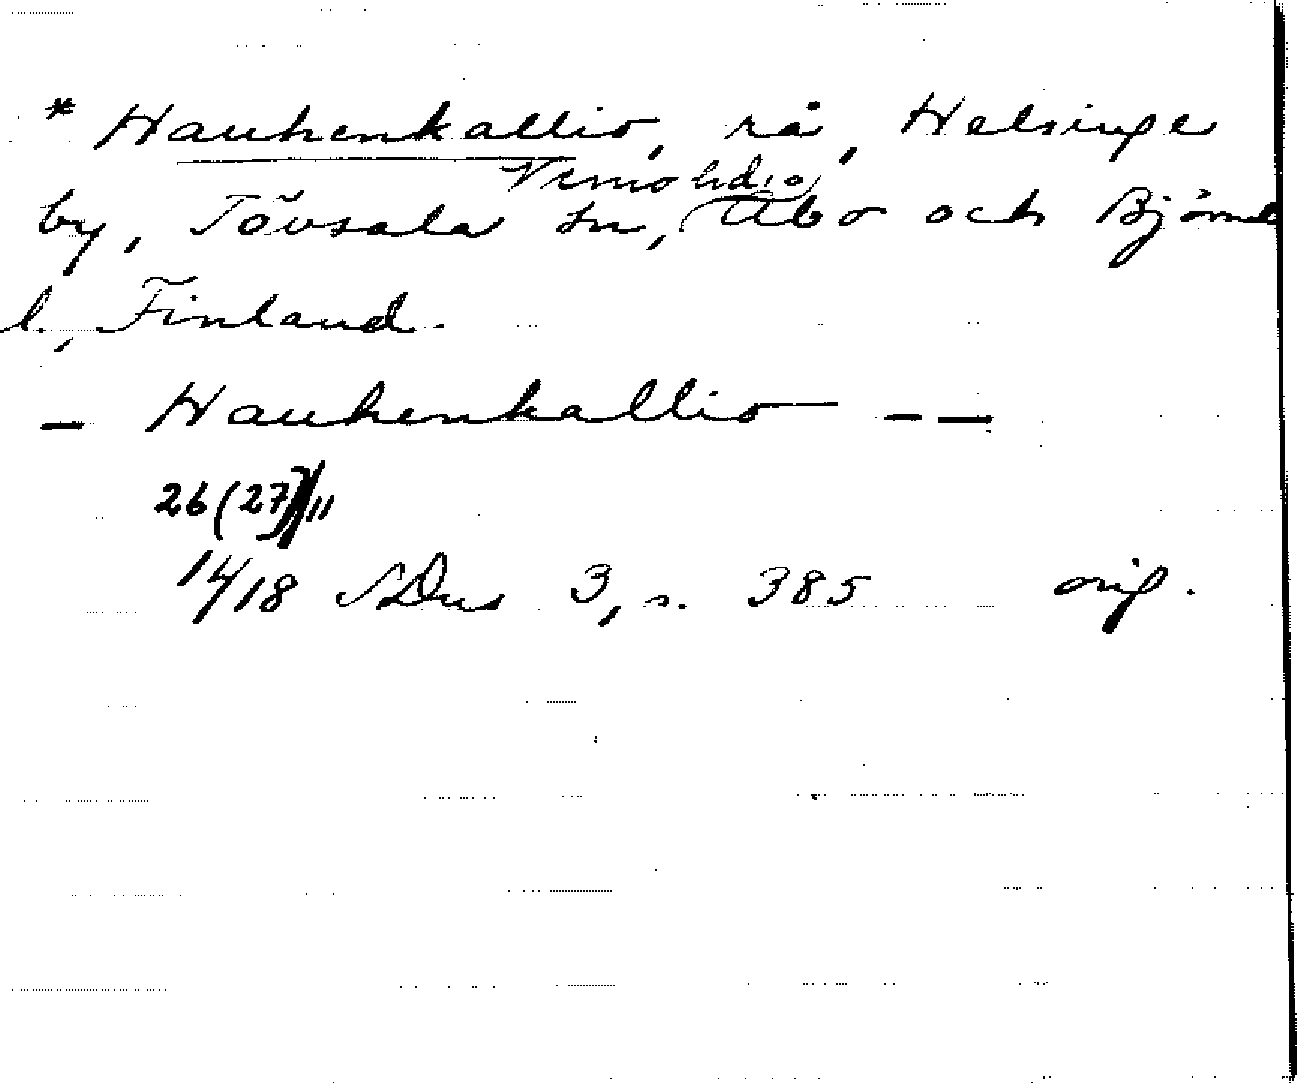 * Hauhenkallio, rå, Helsinge
Vemo hd,
by, Tövsala sn, Åbo och Björneb
l., Finland.
– Hauhenkallio – –
26 (27)/11
14/18 SDns 3, s. 385 orig.